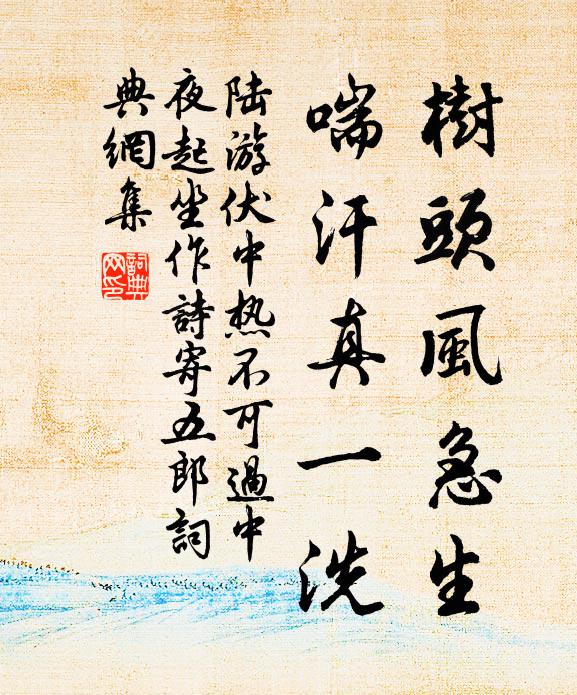 樹頭風急生
喘汗真一洗
陆游伏中热不可過中
夜起坐作詩寄五郎詞
典網集
詞典
网印